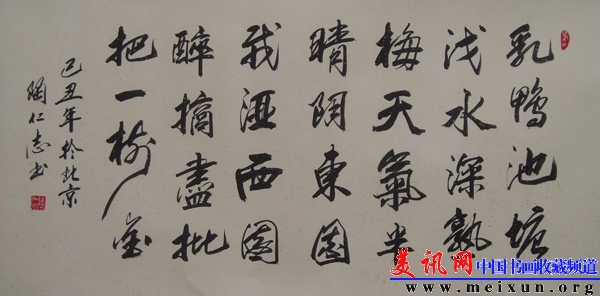 乳鴨池塘
浅水深熟
梅天氣半
晴阴東園
載酒西園
醉摘盡枇
杷一樹金
己丑年於北京
陶仁志书
美讯网 中国书画收藏频道
www.meixun.org